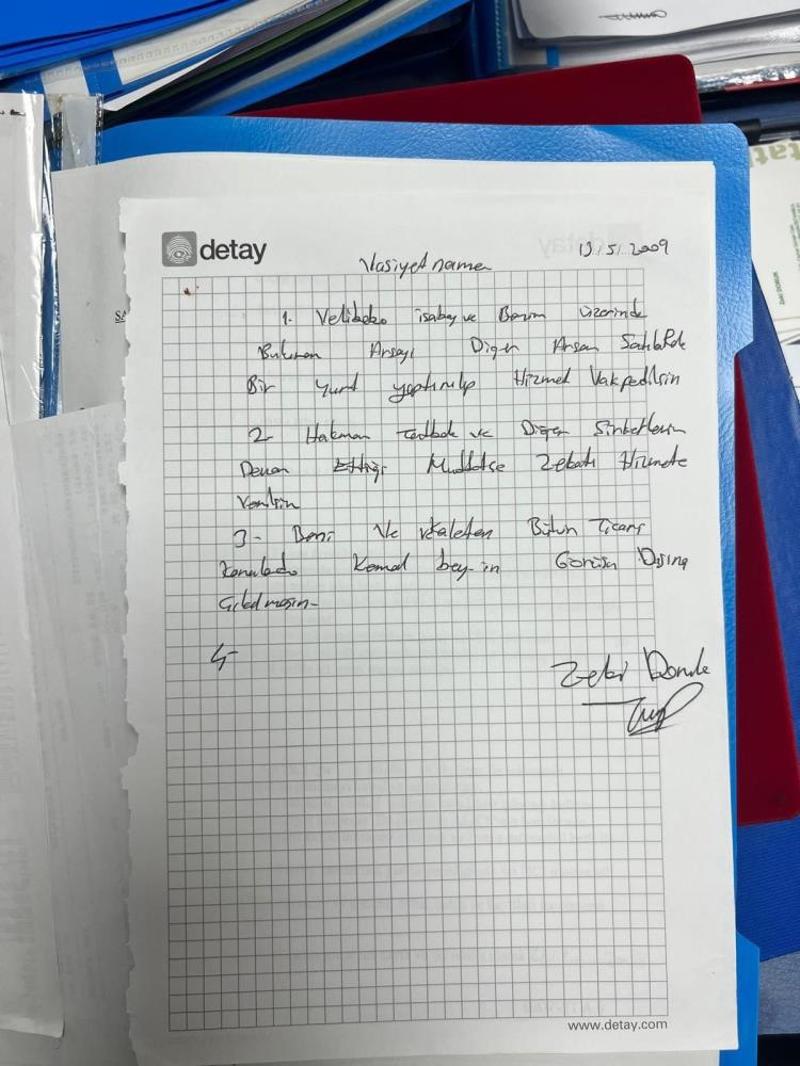 detay
Vasiyet name
19.5.2009
1. Velibaba isabey ve Benim üzerinde
Bulunan Arsayı Diğer Arsam Satılarak
Bir yurt yaptırılıp Hizmet Vakpedilsin
2- Hakman ve Diğer Şirketlerin
Devam Ettiği Müddetçe Zekatı Hizmete
Verilsin
3- Beni Ve Bütün Ticari
Konularda Kemal bey-in Görüşü Dışına
Çıkılmasın-
4-
Zeki
www.detay.com